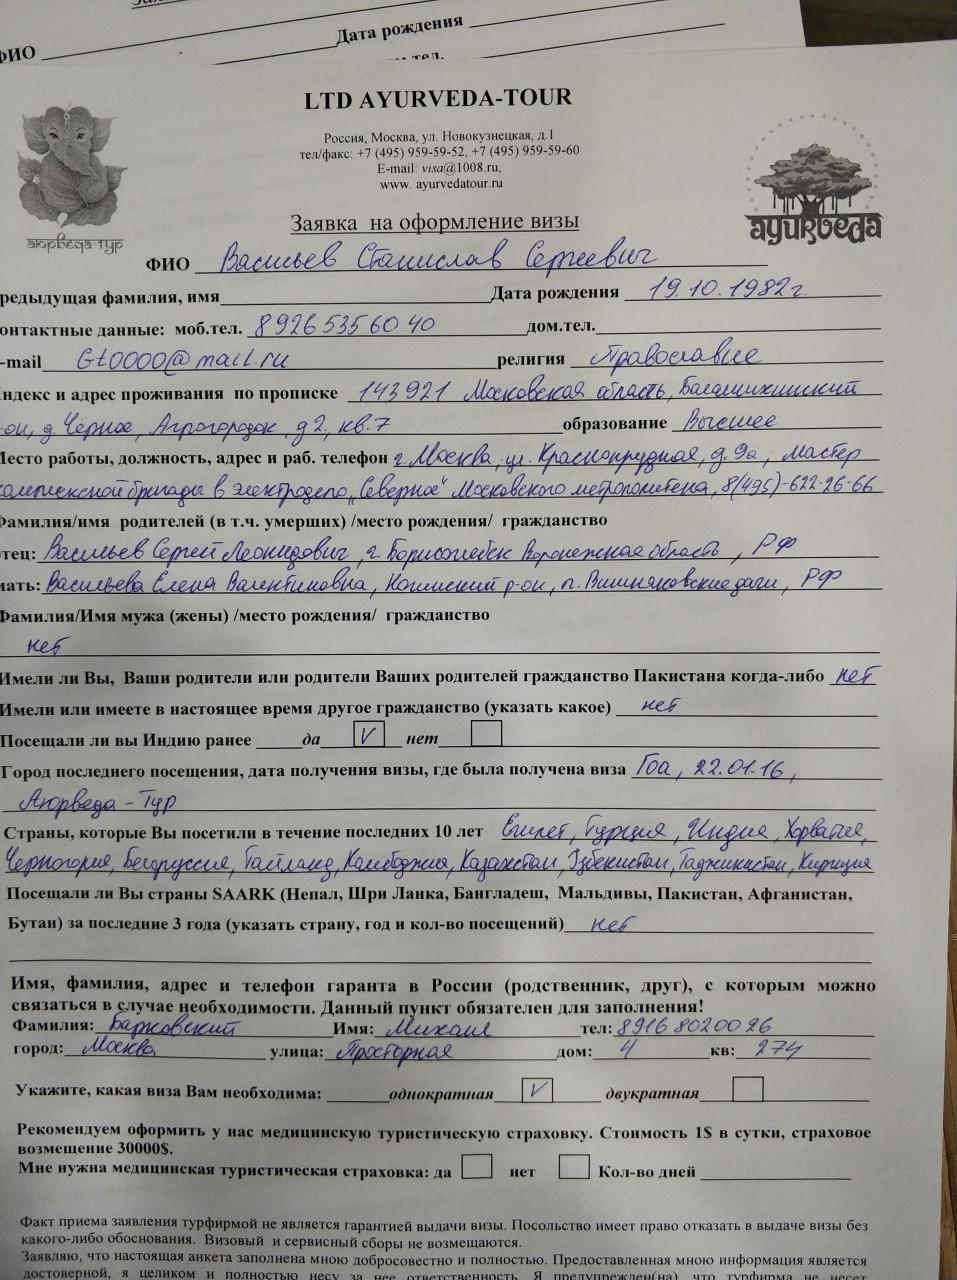 ФИО
Дата рождения
LTD AYURVEDA-TOUR
Россия, Москва, ул. Новокузнецкая, д.1
тел/факс: +7 (495) 959-59-52, +7 (495) 959-59-60
E-mail: visa@1008.ru,
www. ayurvedatour.ru
аюрведа-тур
ayurveda
Заявка на оформление визы
ФИО Васильев Станислав Сергеевич
редыдущая фамилия, имя Дата рождения 19.10.1982г.
онтактные данные: моб.тел. 8 926 535 60 40 дом.тел.
-mail Gt0000@mail.ru религия Православие
ндекс и адрес проживания по прописке 143921 Московская область, Балашихинский
-он, д. Чёрное, Агрогородок, д2, кв.7 образование Высшее
Место работы, должность, адрес и раб. телефон г. Москва, ул. Краснопрудная, д.9а, мастер
комплексной бригады в электродепо „Северное" Московского метрополитена, 8(495)-622-26-66
Фамилия/имя родителей (в т.ч. умерших) /место рождения/ гражданство
тец: Васильев Сергей Леонидович, г. Борисоглебск Воронежская область, РФ
мать: Васильева Елена Валентиновна, р-он, п. Вишняковские дачи, РФ
Фамилия/Имя мужа (жены) /место рождения/ гражданство
нет
Имели ли Вы, Ваши родители или родители Ваших родителей гражданство Пакистана когда-либо нет
Имели или имеете в настоящее время другое гражданство (указать какое) нет
Посещали ли вы Индию ранее да V нет
Город последнего посещения, дата получения визы, где была получена виза Гоа, 22.01.16,
Аюрведа-Тур
Страны, которые Вы посетили в течение последних 10 лет Египет, Турция, Индия, Хорватия,
Черногория, Белоруссия, Тайланд, Камбоджия, Казахстан, Узбекистан, Таджикистан, Киргизия
Посещали ли Вы страны SAARK (Непал, Шри Ланка, Бангладеш, Мальдивы, Пакистан, Афганистан,
Бутан) за последние 3 года (указать страну, год и кол-во посещений) нет
Имя, фамилия, адрес и телефон гаранта в России (родственник, друг), с которым можно
связаться в случае необходимости. Данный пункт обязателен для заполнения!
Фамилия: Барковский Имя: Михаил тел: 8916 8020026
город: Москва улица: Просторная дом: 4 кв: 274
Укажите, какая виза Вам необходима: однократная V двукратная
Рекомендуем оформить у нас медицинскую туристическую страховку. Стоимость 1$ в сутки, страховое
возмещение 30000$.
Мне нужна медицинская туристическая страховка: да нет Кол-во дней
Факт приема заявления турфирмой не является гарантией выдачи визы. Посольство имеет право отказать в выдаче визы без
какого-либо обоснования. Визовый и сервисный сборы не возмещаются.
Заявляю, что настоящая анкета заполнена мною добросовестно и полностью. Предоставленная мною информация является
достоверной, я целиком и полностью несу за нее ответственность. Я предупрежден(на), что турфирма не несет